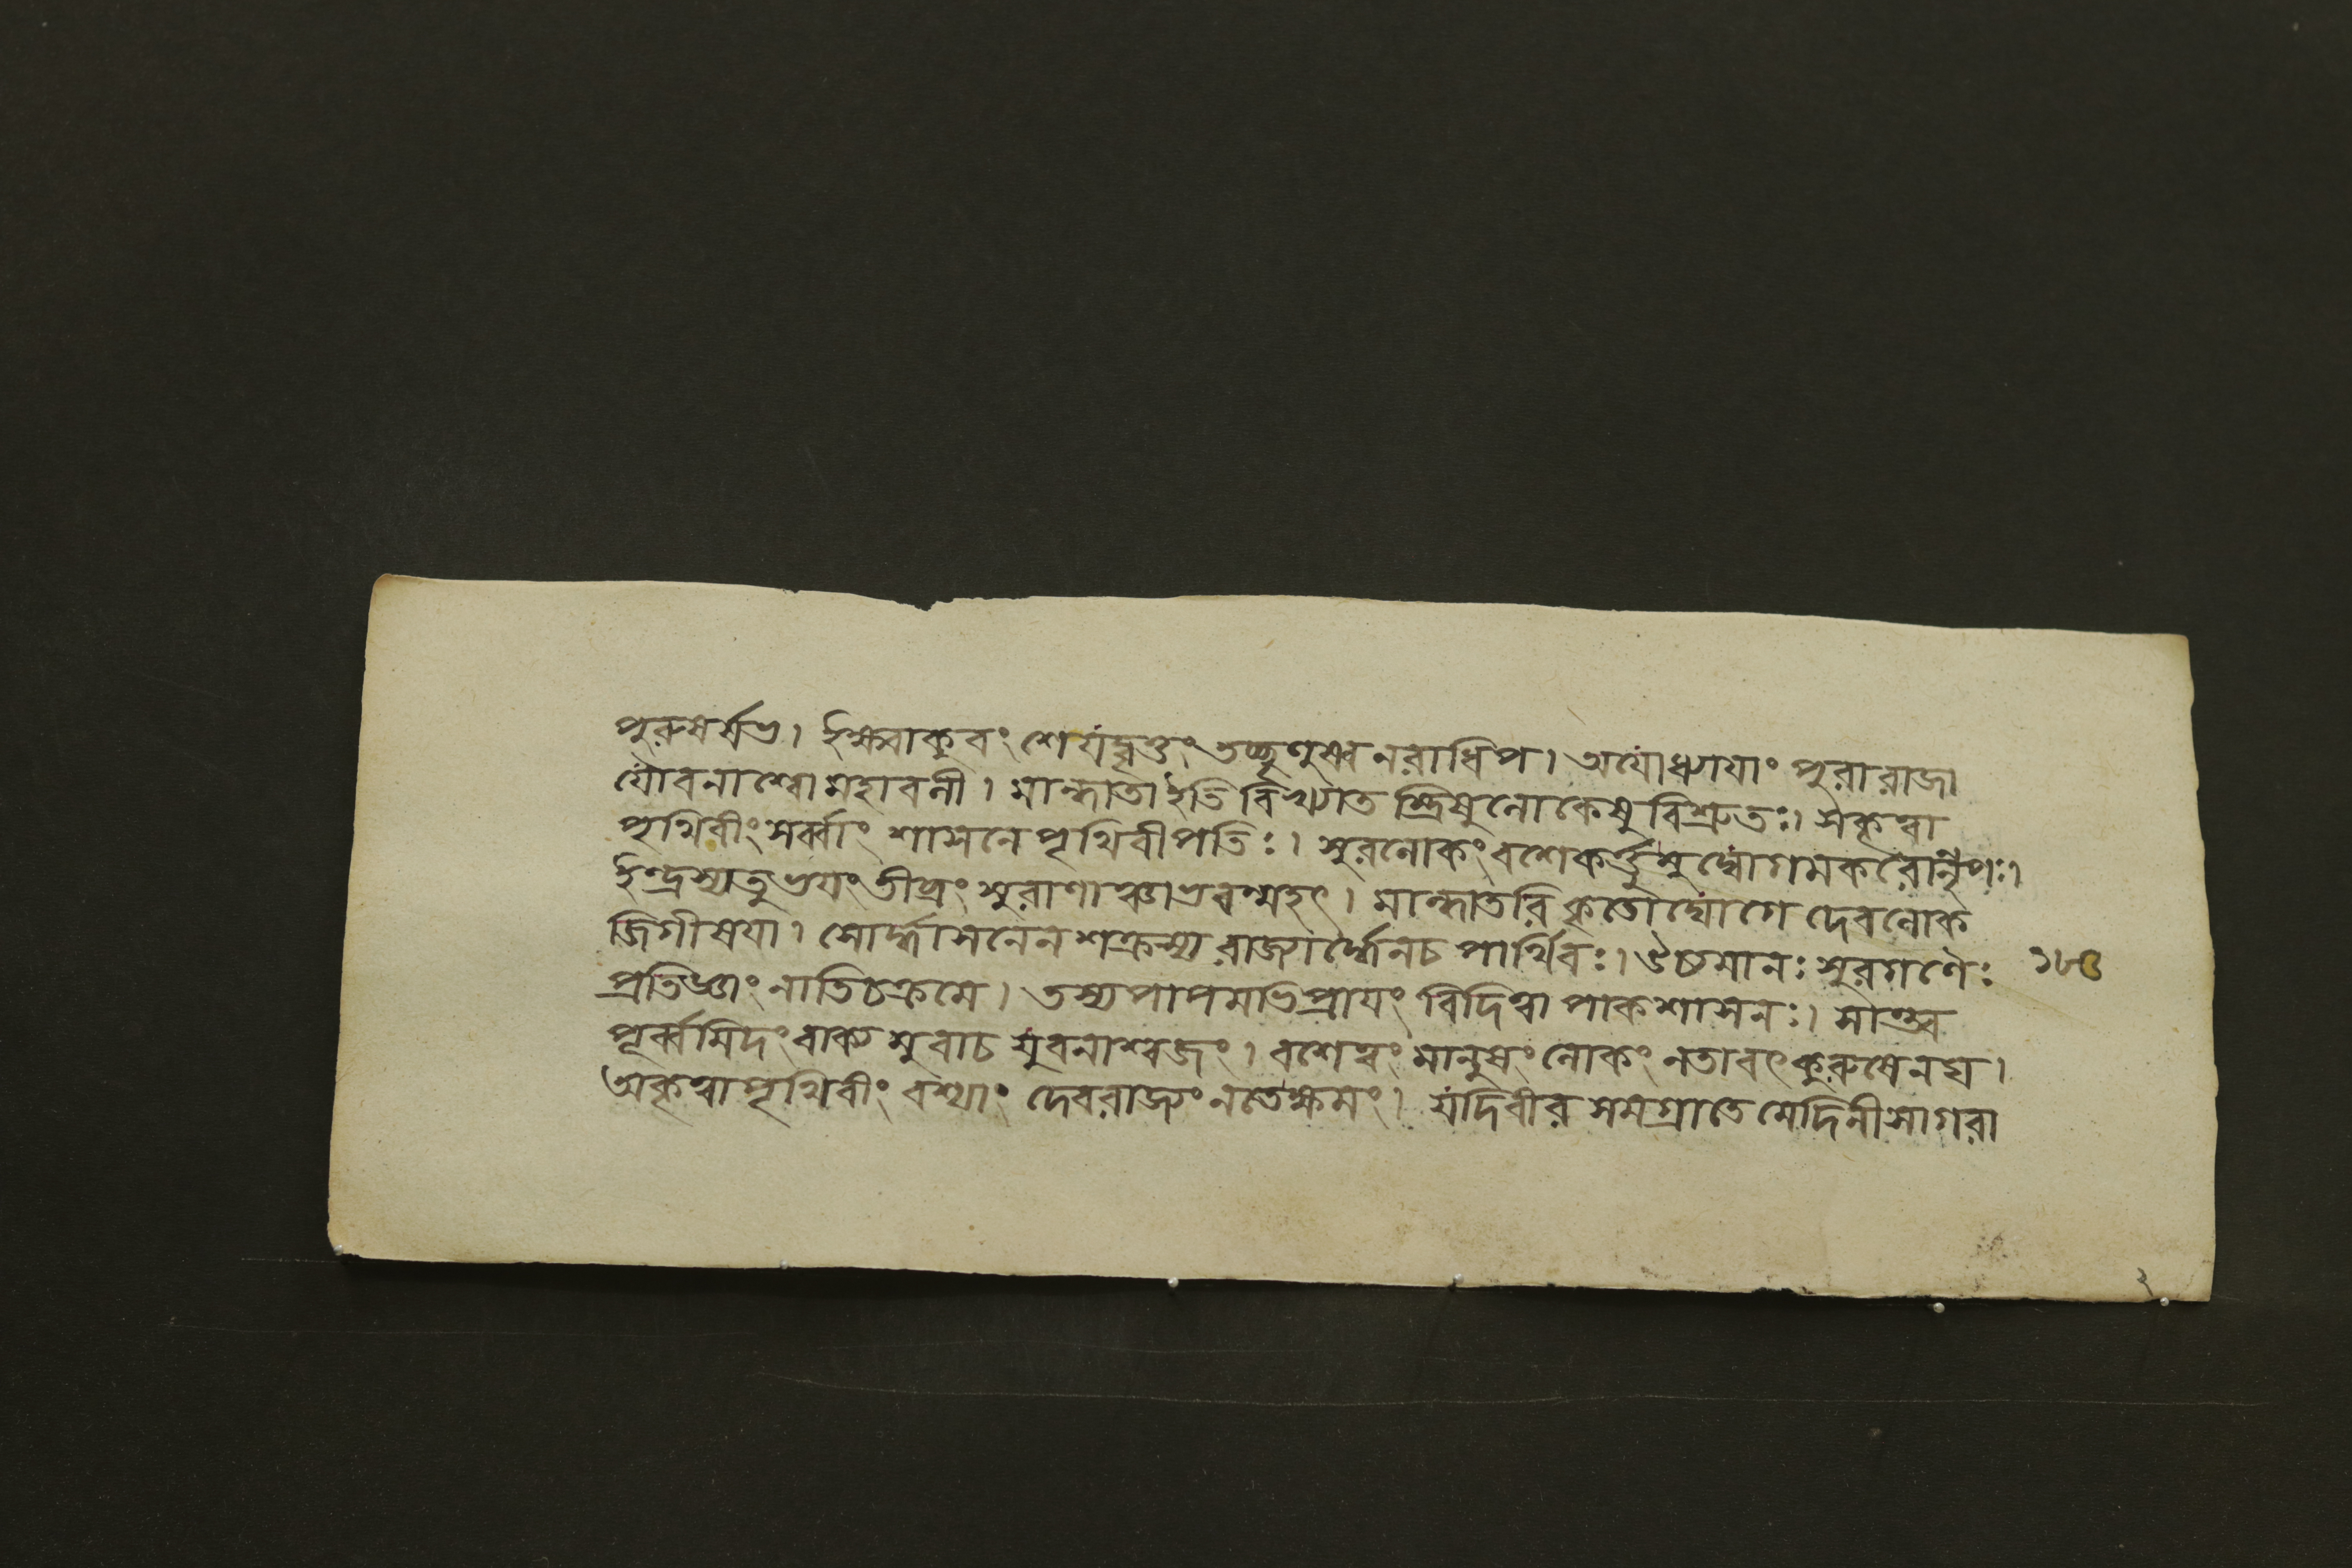 পুরুষর্ষভ। ইক্ষ্বাকুবংশে যদ্বৃত্তং তচ্ছৃণুষ্ব নরাধিপ। অযোধ্যাযাং পুরা রাজা
যৌবনাশ্বো মহাবলী। মান্ধাতা ইতি বিখ্যাত স্ত্রিষু লোকেষু বিশ্রুতঃ। স কৃত্বা
পৃথিবীং সর্ব্বাং শাসনে পৃথিবীপতিঃ। সুরলোকং বশে কর্ত্তুমুদ্যোগমকরোন্নৃপঃ।
ইন্দ্রস্য তু ভযং তীব্রং সুরাণাঞ্চাভবন্মহৎ। মান্ধাতরি কৃতোদ্যোগে দেবলোক
জিগীষযা। সোর্দ্ধাসনেন শক্রস্য রাজ্যার্দ্ধেন চ পার্থিবঃ। ঈড্যমানঃ সুরগণৈঃ
প্রতিজ্ঞাং নাতিচক্রমে। তস্য পাপমভিপ্রাযং বিদিত্বা পাকশাসনঃ। সান্ত্ব
পূর্ব্বমিদং বাক্যমুবাচ যুবনাশ্বজং। বশে ত্বং মানুষং লোকং ন তাবৎ কুরুষেনঘ।
অকৃত্বা পৃথিবীং বশ্যাং দেবরাজ্যং ন তে ক্ষমং। যদি বীর সমগ্রা তে মেদিনী সাগরা
২